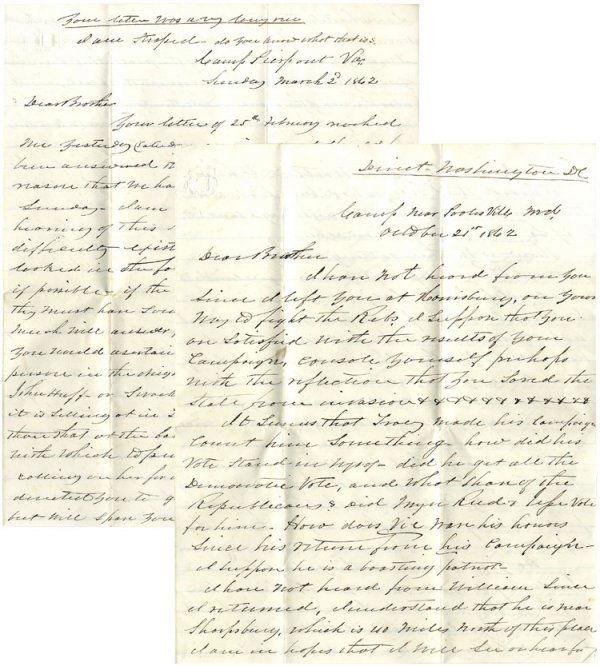 Your letter was a very long one
I am strapped - do you know what that is.
Camp Pierpont Va.
Sunday March 2d 1862
Dear Brother
Your letter of 25th February reached
me yesterday
been answered
reason that we ha
Sunday - I am
hearing of this
difficulty exist
looked in the fo
if possible if the
they must have
much will answer,
You would ascertain
person in the neig
John Huff - or
it is selling at in
then that at the ba
with which to pu
calling on her for
directed you to g
but will span you
Direct - Washington DC
Camp Near Poolesville Md.
October 21st 1862
Dear Brother
I have not heard from you
since I left you at Harrisburg, on your
way to fight the Rebs. I suppose that you
are satisfied with the results of your
Campaign, console yourself perhaps
with the reflection that you saved the
State from invasion & & & & & & & & & &
It seems that Tracy made his Campaign
Count him something. how did his
vote stand in - did he get all the
Democratic vote, and what share of the
Republicans & did Myer vote
for him - How does Vic wear his honors
since his return from his Campaign -
I suppose he is a boasting patriot -
I have not heard from William since
I returned, I understand that he is near
Sharpsburg, which is 40 miles north of this place
I am in hopes that I will see or hear